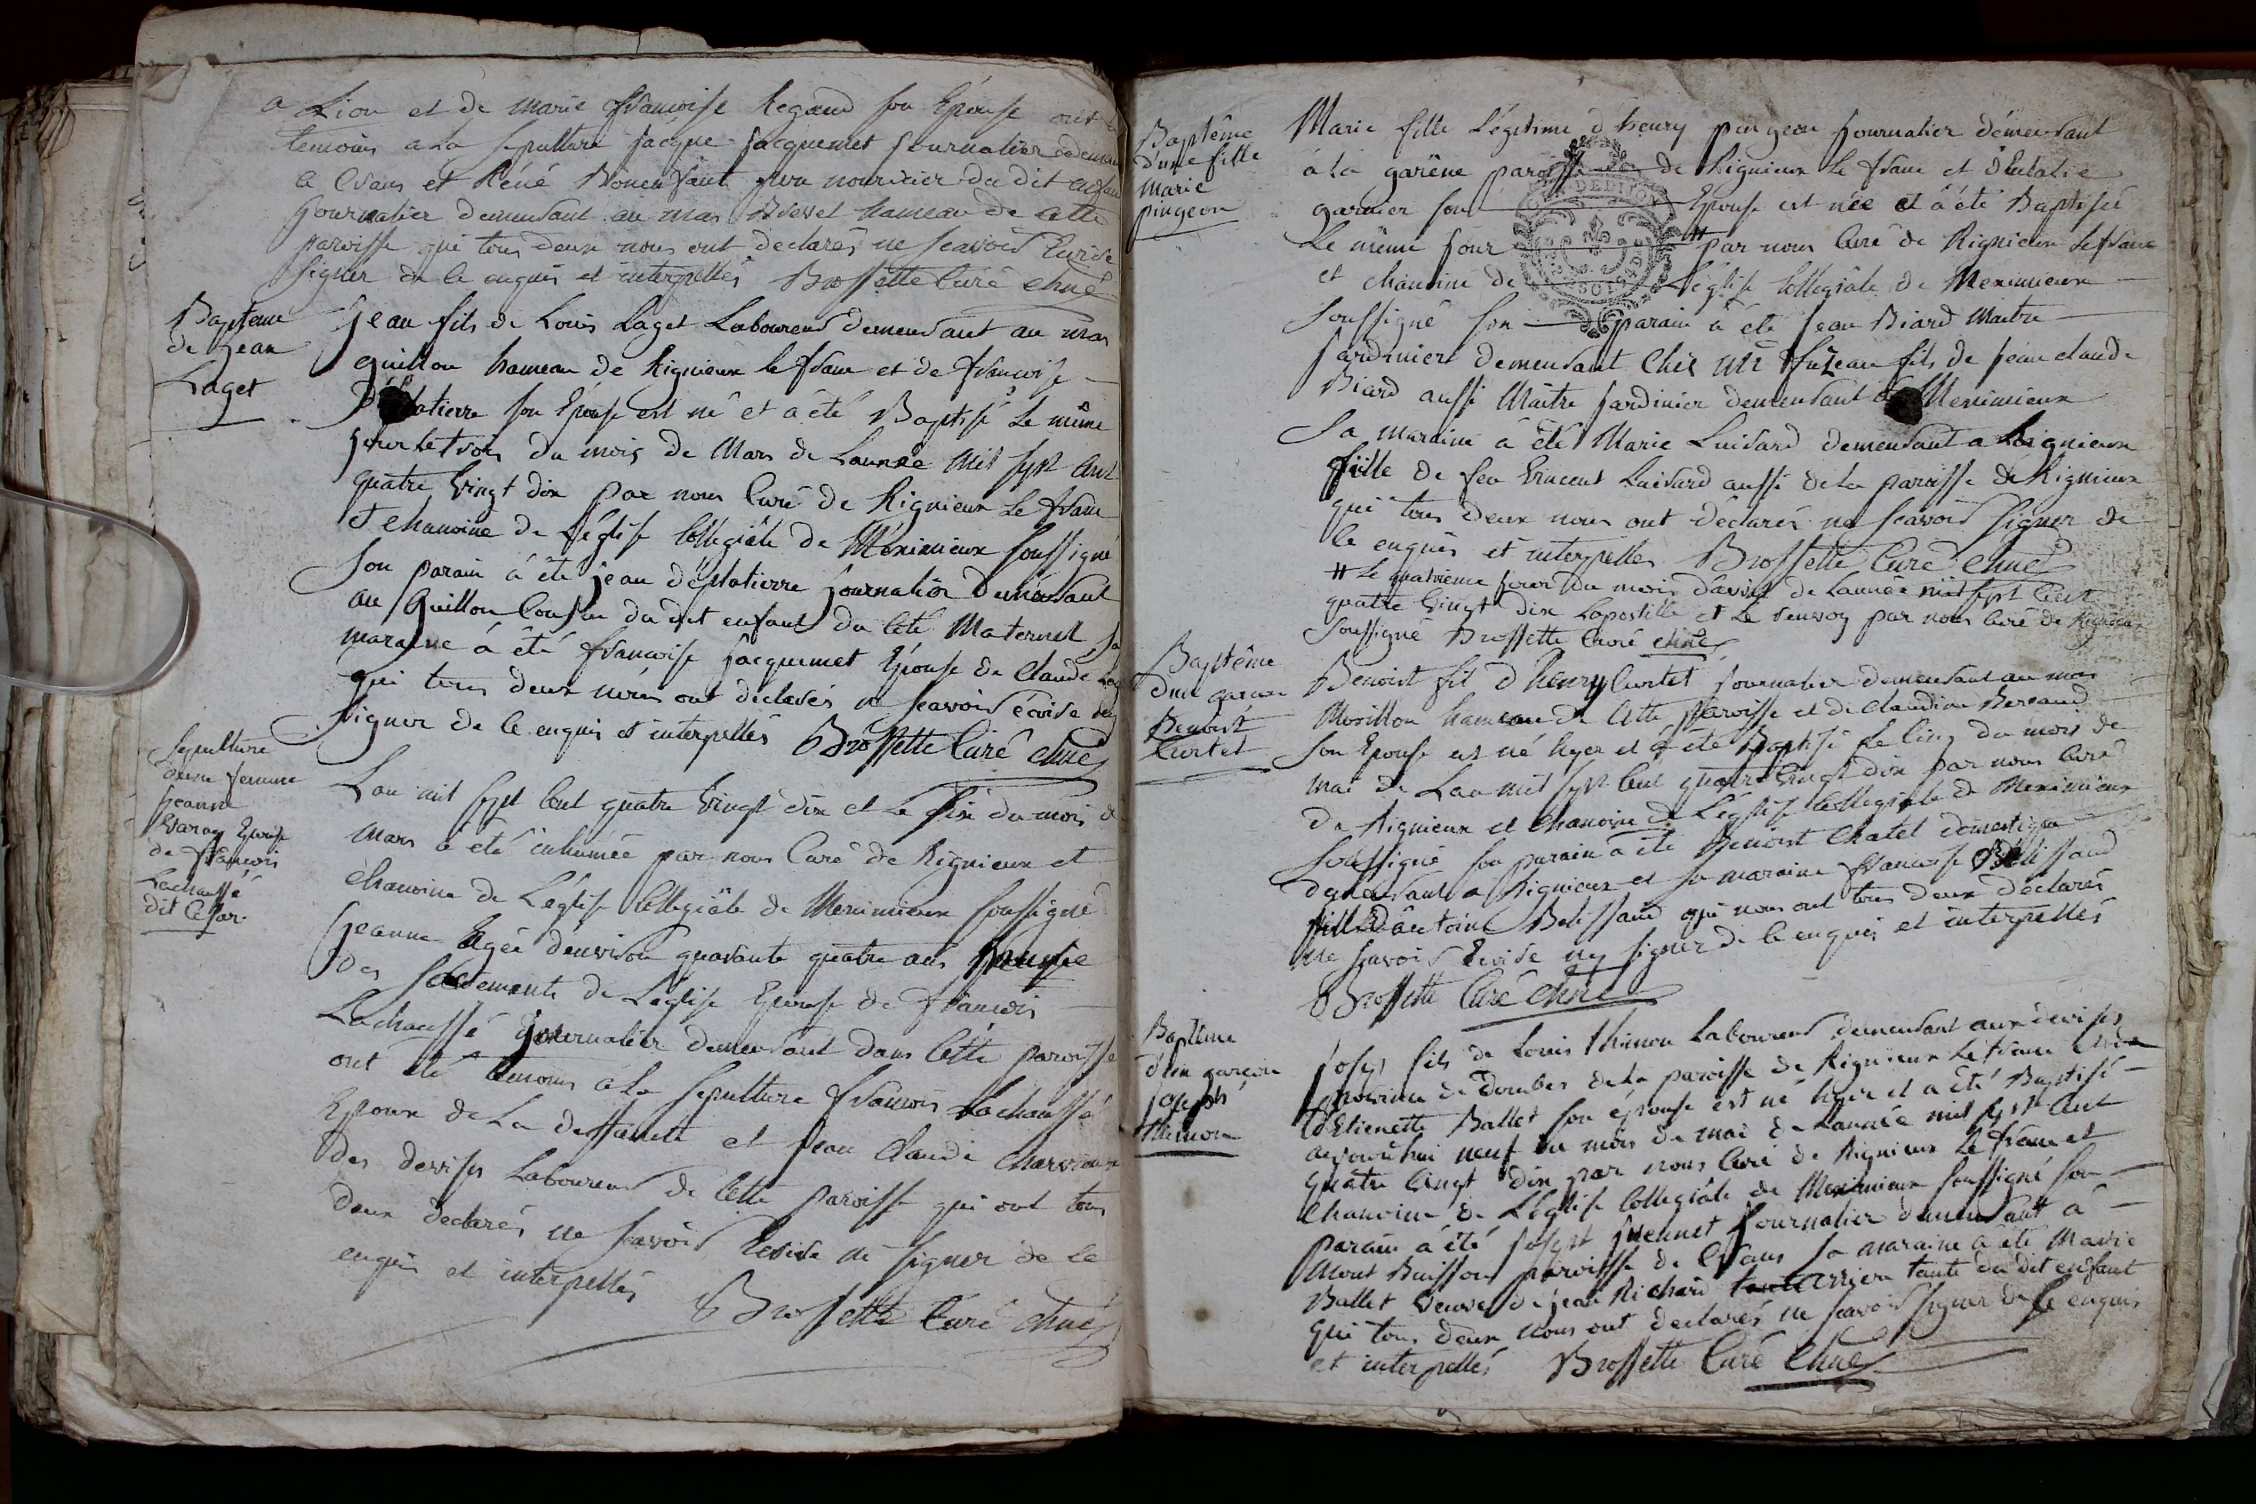 a Lion et de marie francoise Regaud son Epouse ont
temoins a la sepulture jacque jacquemet journalier
a Crans et Réné Donensant pere nourricier du dit enfant
journalier demeurant au mas Brevet hameau de cette
paroisse qui tous deux nous ont declarés ne scavoir Ecrire
signer de ce enquis et interpellés Brossette Curé chne
Bapteme
de jean
Laget
jean fils de Louis Laget Laboureur demeurant au mas
guillon hameau de Rignieux le franc et de francoise
son Epouse est né et a été Baptisé Le même
jour le trois du mois de Mars de Lannée mil sept cent
quatre vingt dix par nous Curé de Rignieux Le franc
et chanoine de L'église Collegiale de Méximieux soussigné
son parain à été jean déplatierre journalier demeurant
au Guillon Cousin du dit enfant du coté Maternel sa
maraine à été francoise jacquemet Epouse de Claude
qui tous deux nous ont déclarés ne scavoir écrire
signer de ce enquis et interpellés Brossette Curé chne
sepulture
d'une femme
jeanne
Varay Epouse
de francois
Lachaussé
dit Cesar
L'an mil sept cent quatre vingt dix et le six du mois de
mars a été inhumée par nous Curé de Rignieux et
chanoine de L'église Collegiale de Meximieux soussigné
jeanne agée d'environ quarante quatre ans munie
des sacrements de L'eglise Epouse de francois
Lachaussé journalier demeurant dans cette paroisse
ont été temoins à la sepulture francois Lachaussé
Epoux de La deffunte et jean Claude Charvieux
des devises Laboureur de cette paroisse qui ont tous
deux declarés ne scavoir Ecrire ni signer de ce
enquis et interpellés
Brossette Curé chne
Baptême
d'une fille
marie
pingeon
Marie fille Légitime d'henry pingeon journalier démeurant
à la garêne paroisse de Rignieux Le franc et d'Eulalie
garnier son Epouse est née et à été Baptisée
Le même jour # par nous Curé de Rignieux Le franc
et chanoine de L'église Collegiale de Meximieux
soussigné son parain à été jean Biard Maitre
jardinier demeurant chez Mr fuzeau fils de jean claude
Biard aussi Maître jardinier demeurant a Meximieux
sa maraine à été Marie Luisard demeurant a Rignieux
fille de feu Vincent Luisard aussi de la paroisse de Rignieux
qui tous deux nous ont déclarés ne scavoir signer de
ce enquis et interpellés Brossette Curé chne
# Le quatrieme jour du mois d'avril de Lannée mil sept cent
quatre vingt dix Lapostille et Le renvoy par nous Curé de Rignieux
soussigné Brossette Curé chne
Baptême
d'un garcon
Benoist
Curtet
Benoist fils d'henry Curtet journalier demeurant au mas
Morillon hameau de cette paroisse et de claudine Bereaud
son Epouse est né hyer et à été Baptisé Le cinq du mois de
mai de Lan mil sept cent quatre vingt dix par nous Curé
de Rignieux et chanoine de L'église Collegiale de Meximieux
soussigné son parain à été Benoist Chatel domestique
demeurant à Rignieux et sa maraine francoise Belissaud
fille D'antoine Belissaud qui nous ont tous deux déclarés
ne scavoir Ecrire ny signer de ce enquis et interpellés
Brossette Curé chne
Baptême
d'un garcon
joseph
thimon
joseph fils de Louis thimon Laboureur demeurant aux devises
province de dombes de la paroisse de Rignieux Le franc
d'Etienette Ballet son épouse est né hyer et a été Baptisé
aujourd'hui neuf du mois de mai de Lannée mil sept cent
quatre vingt dix par nous Curé de Rignieux Le franc et
chanoine de L'église Collegiale de Meximieux soussigné son
parain à été joseph juennet journalier demeurant à
Mont Buisson paroisse de Crans sa maraine a été Marie
Ballet veuve de jean Richard tante arriere tante du dit enfant
qui tous deux nous ont declarés ne scavoir signer de ce enquis
et interpellés Brossette Curé chne